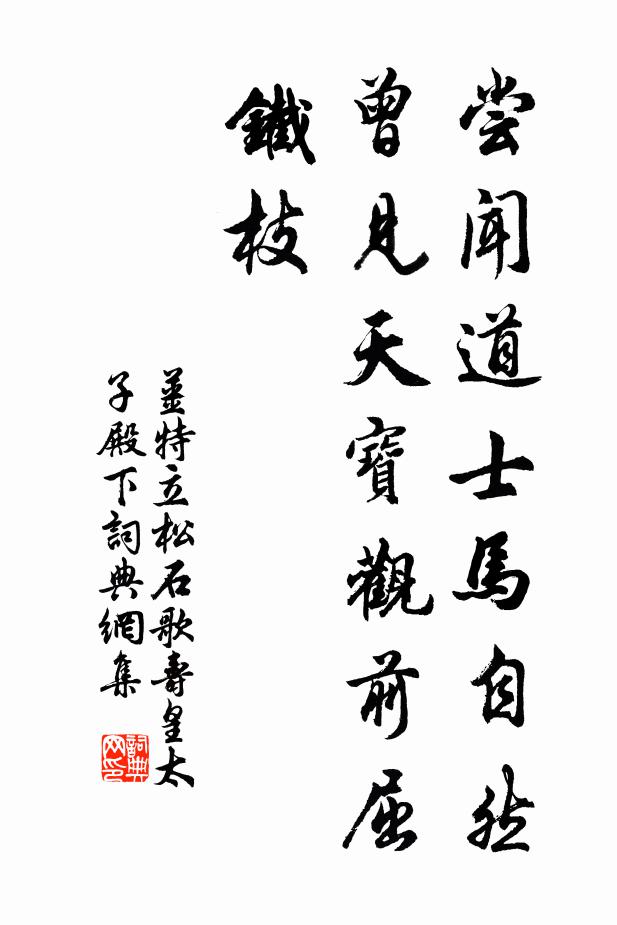 尝聞道士馬自然
曾見天寶觀前屈
鐵枝
姜特立松石歌壽皇太
子殿下詞典網集
詞典網印